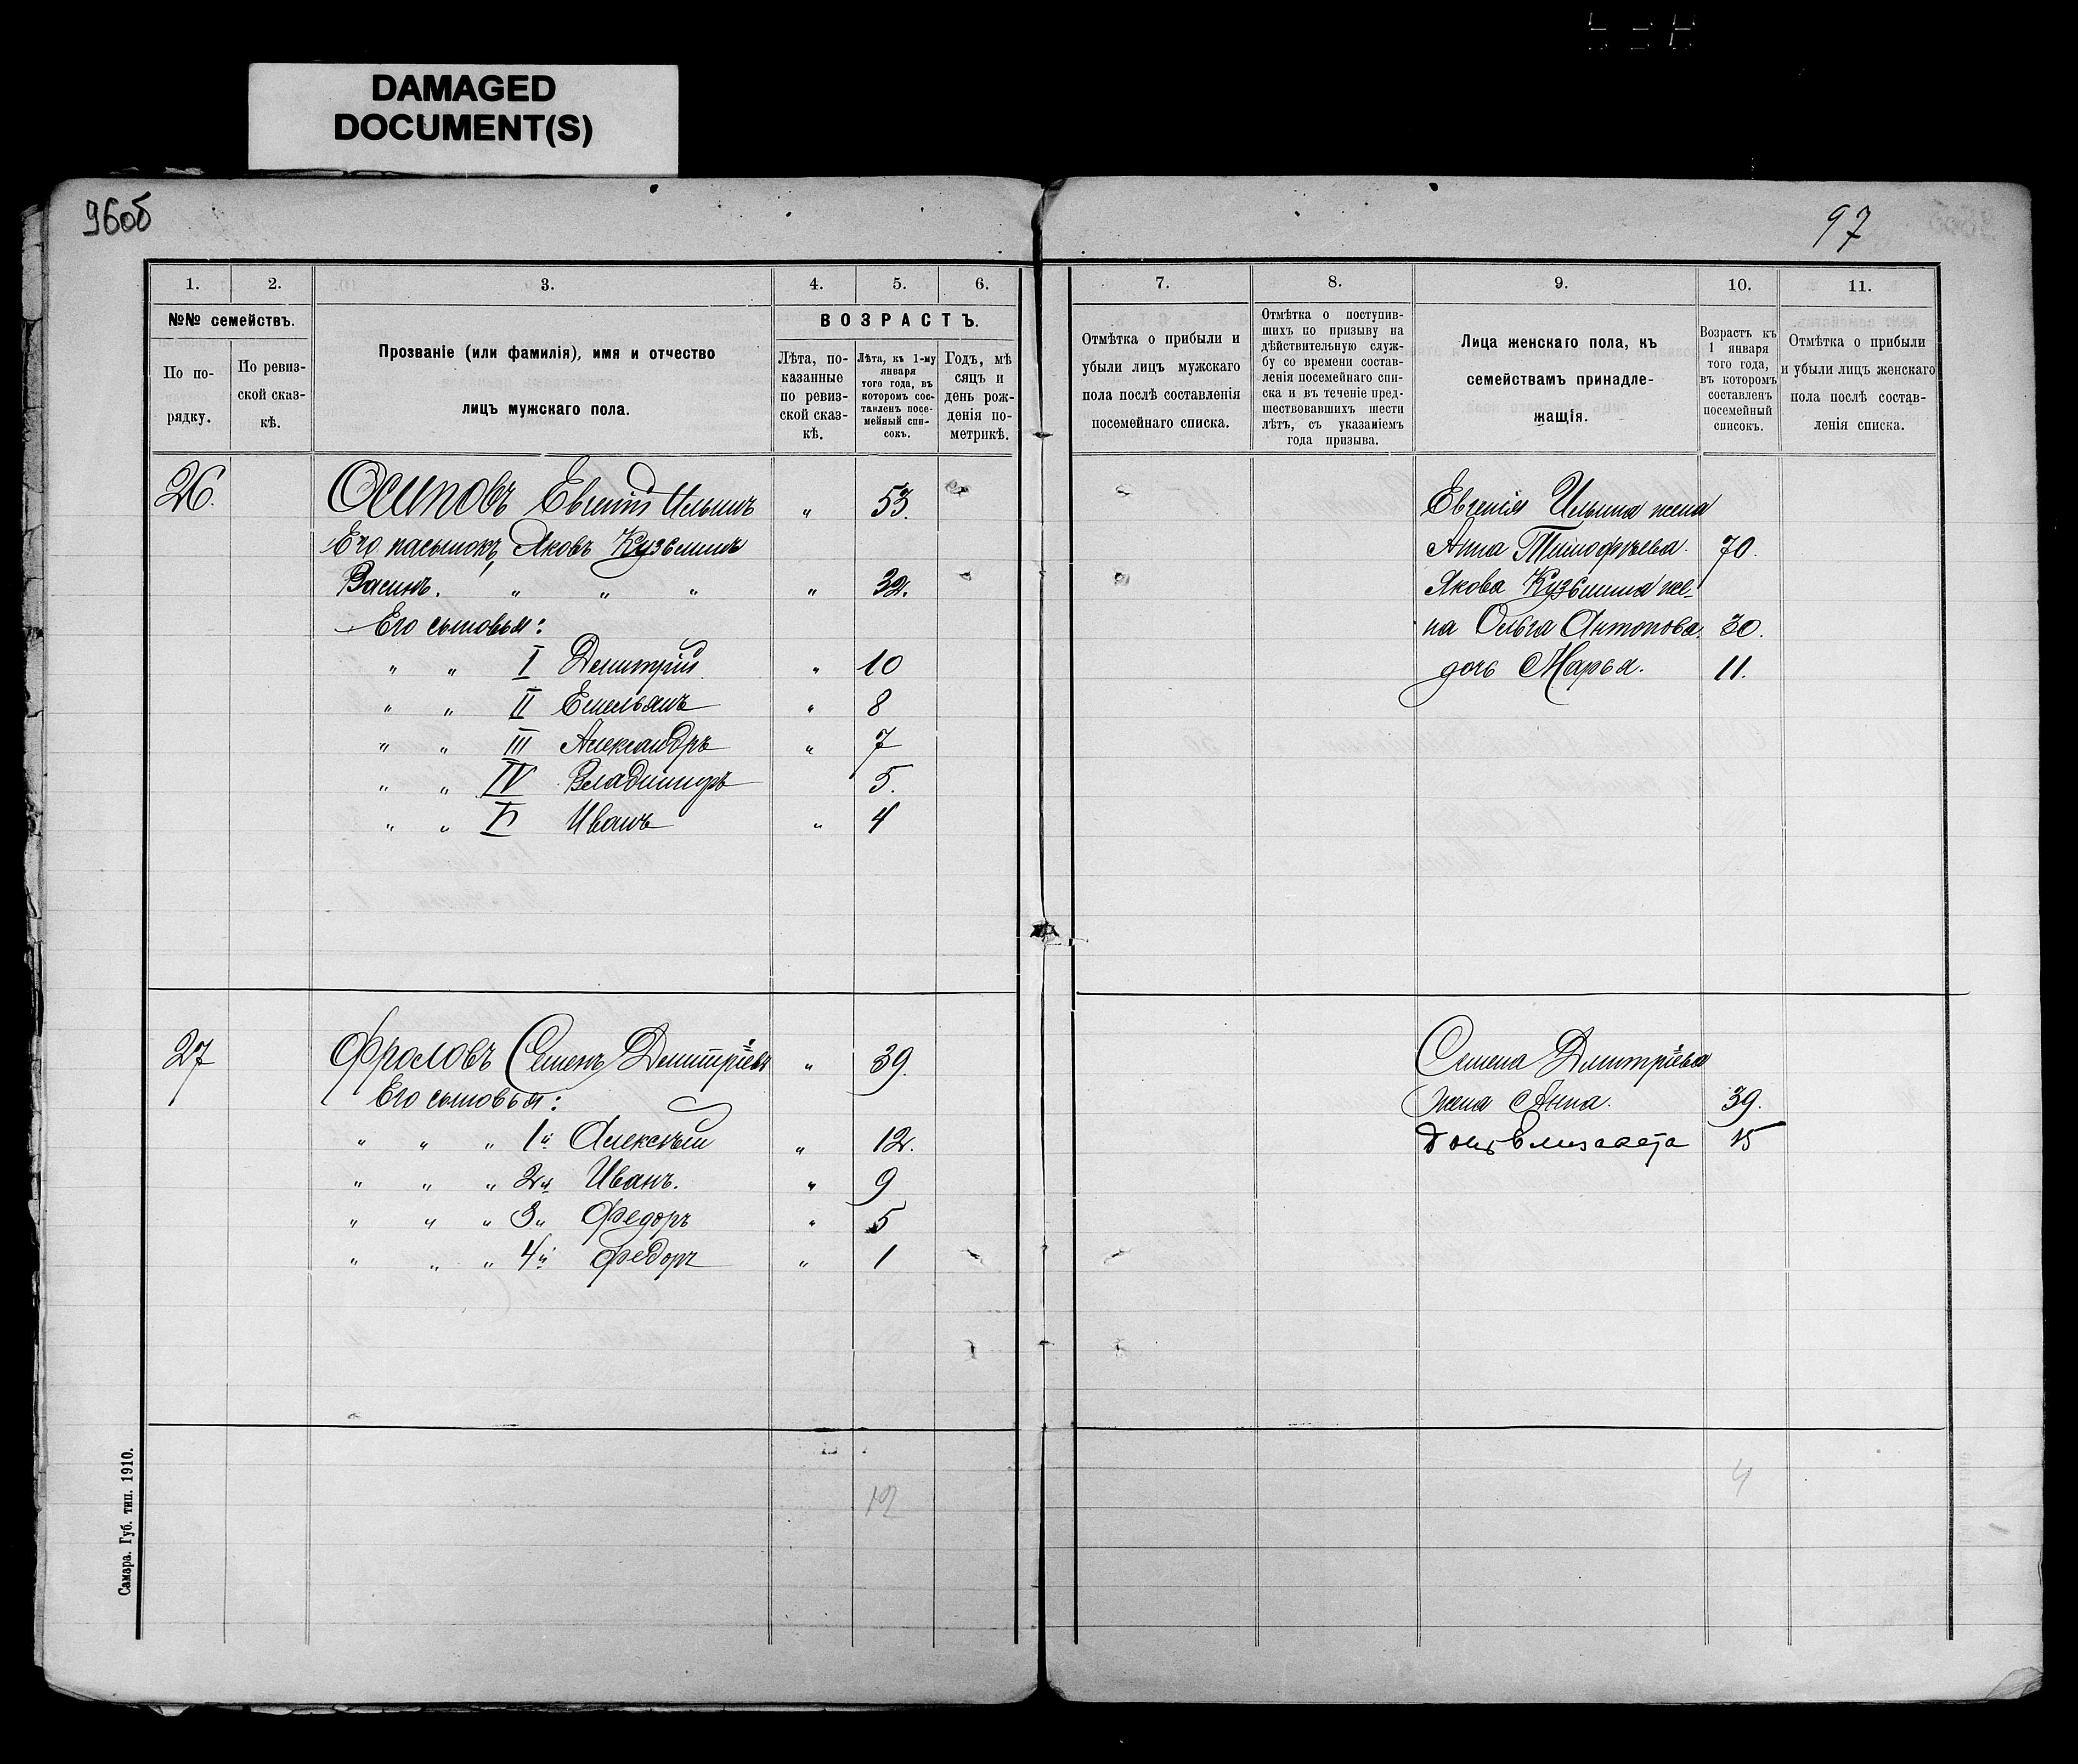 DAMAGED
DOCUMENT(S)
96об
97
1. 2. 3. 4. 5. 6.
№№ семействъ.
По по-
рядку.
По ревиз-
ской сказ-
кѣ.
Прозваніе (или фамилія), имя и отчество
лицъ мужскаго пола.
ВОЗРАСТЪ.
Лѣта, по-
казанные
по ревиз-
ской сказ-
кѣ.
Лѣта, къ 1-му
января
того года, въ
которомъ сос-
тавленъ посе-
мейный спи-
сокъ.
Годъ, мѣ
сяцъ и
день рож-
денія по-
метрикѣ.
26. Осиповъ Евгеній Ильинъ „ 53.
Его пасынокъ, Яковъ Кузьминъ
Васинъ. „ „ „ „ 32.
Его сыновья:
„ „ I Димитрій „ 10
„ „ II Емельянъ „ 8
„ „ III Александръ „ 7
„ „ IV Владимиръ 5.
„ „ V Иванъ „ 4
27 Фроловъ Семенъ Димитріевъ „ 39.
Его сыновья:
„ „ „ 1й Алексѣй „ 12.
„ „ „ 2й Иванъ. „ 9
„ „ „ 3й Федоръ „ 5
„ „ „ 4й Федоръ „ 1
12
Самара. Губ. тип. 1910.
7. 8. 9. 10. 11.
Отмѣтка о прибыли и
убыли лицъ мужскаго
пола послѣ составленія
посемейнаго списка.
Отмѣтка о поступив-
шихъ по призыву на
дѣйствительную служ-
бу со времени состав-
ленія посемейнаго спи-
ска и въ теченіе пред-
шествовавшихъ шести
лѣтъ, съ указаніемъ
года призыва.
Лица женскаго пола, къ
семействамъ принадле-
жащія.
Возрастъ къ
1 января
того года,
въ которомъ
составленъ
посемейный
списокъ.
Отмѣтка о прибыли
и убыли лицъ женскаго
пола послѣ состав-
ленія списка.
Евгенія Ильина жена
Анна Тимофѣева. 70.
Якова Кузьмина же-
на Ольга Антонова. 30.
дочь Марья. 11.
Семена Дмитріева
жена Анна. 39.
дочь Елизавета 15
4